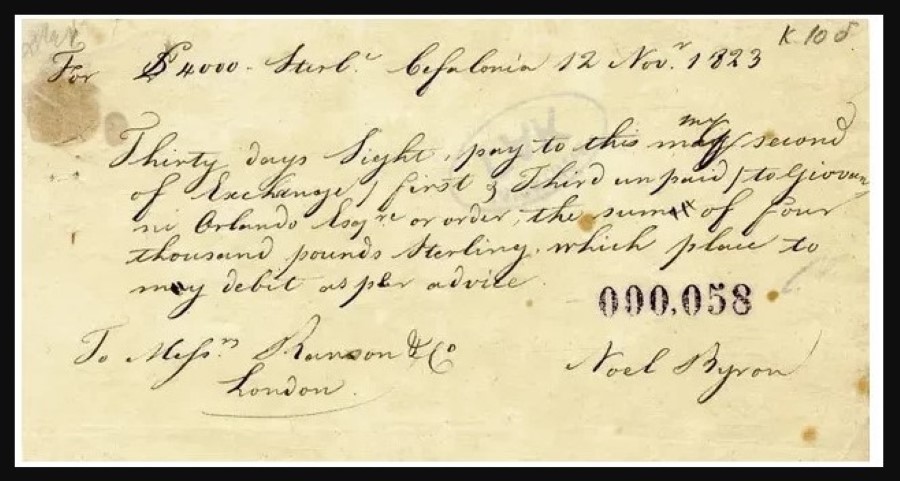 K 10 δ
For £ 4000 - Sterl.g Cefalonia 12 Nov.r 1823
Thirty days Sight, pay to this my second
of Exchange / first & Third unpaid / to Giovan
ni Orlando Esqre or order, the sum of four
thousand pounds Sterling, which place to
my debit as per advice
000,058
To Messrs Ranson & Co
London.
Noel Byron